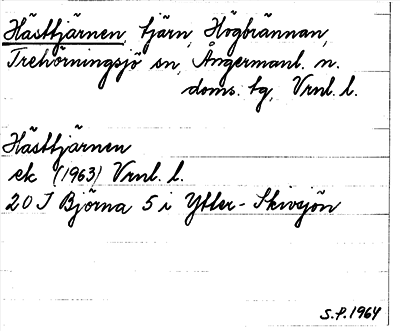 Hästtjärnen, tjärn, Högbrännan,
Trehörningsjö sn, Ångermanl. n.
doms. tg, Vrnl. l.
Hästtjärnen
ek (1963) Vrnl. l.
20 I Björna 5 i Ytter-Skivsjön
S.P. 1964